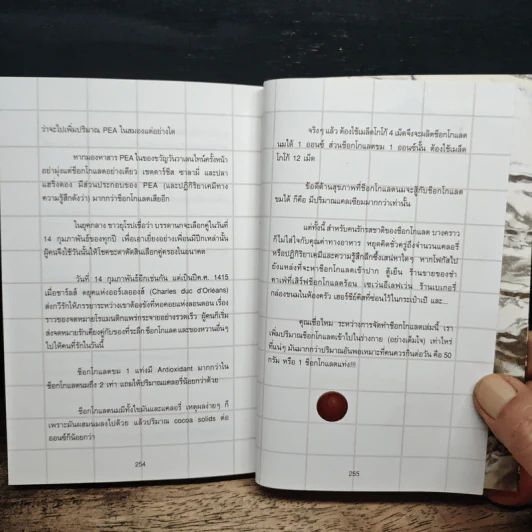 ว่าจะไปเพิ่มปริมาณ PEA ในสมองแต่อย่างใด
หากมองหาสาร PEA ในของขวัญวันวาเลนไทน์ครั้งหน้า
อย่ามุ่งแต่ช็อกโกแลตอย่างเดียว เชดดาร์ชีส ซาลามี่ และปลา
แฮริ่งดอง มีส่วนประกอบของ PEA (และปฏิกิริยาเคมีทาง
ความรู้สึกดังว่า) มากกว่าช็อกโกแลตเสียอีก
ในยุคกลาง ชาวยุโรปเชื่อว่า บรรดานกจะเลือกคู่ในวันที่
14 กุมภาพันธ์ของทุกปี เพื่อเอาเยี่ยงอย่างเพื่อนมีปีกเหล่านั้น
ผู้คนจึงใช้วันนั้นให้โชคชะตาตัดสินเลือกคู่ครองในอนาคต
วันที่ 14 กุมภาพันธ์อีกเช่นกัน แต่เป็นปีค.ศ. 1415
เมื่อชาร์ลส์ ดยุคแห่งออร์เลออองส์ (Charles duc d'Orleans)
ส่งกวีรักให้ภรรยาระหว่างเขาต้องขังที่หอคอยแห่งลอนดอน เรื่อง
ราวของจดหมายโรแมนติกแพร่กระจายอย่างรวดเร็ว ผู้คนก็เริ่ม
ส่งจดหมายรักเคียงคู่กับของที่ระลึก ช็อกโกแลต และของหวานอื่นๆ
ไปให้คนที่รักในวันนี้
ช็อกโกแลตขม 1 แท่งมี Antioxidant มากกว่าใน
ช็อกโกแลตนมถึง 2 เท่า แถมให้ปริมาณแคลอรี่น้อยกว่าด้วย
ช็อกโกแลตนมมีทั้งไขมันและแคลอรี่ เหตุผลง่ายๆ ก็
เพราะมันผสมนมลงไปด้วย แล้วปริมาณ cocoa solids ต่อ
ออนซ์ก็น้อยกว่า
254
จริงๆ แล้ว ต้องใช้เมล็ดโกโก้ 4 เม็ดจึงจะผลิตช็อกโกแลต
นมได้ 1 ออนซ์ ส่วนช็อกโกแลตขม 1 ออนซ์นั้น ต้องใช้เมล็ด
โกโก้ 12 เม็ด
ข้อดีด้านสุขภาพที่ช็อกโกแลตนมจะสู้กับช็อกโกแลต
ขมได้ ก็คือ มีปริมาณแคลเซียมมากกว่าเท่านั้น
แต่ทั้งนี้ สำหรับคนรักรสชาติของช็อกโกแลต บางคราว
ก็ไม่ใส่ใจกับคุณค่าทางอาหาร หยุดคิดชั่วครู่ถึงจำนวนแคลอรี่
หรือปฏิกิริยาเคมีและความรู้สึกลึกซึ้งเสน่หาใดๆ หากโฟกัสไป
ยังแหล่งที่จะหาช็อกโกแลตเข้าปาก ตู้เย็น ร้านขายของชำ
คาเฟ่ที่เสิร์ฟช็อกโกแลตร้อน เซเว่นอีเลฟเว่น ร้านเบเกอรี่
กล่องขนมในห้องครัว เฮอร์ชีย์คิสที่ซ่อนไว้ในกระเป๋าเป้ และ...
คุณเชื่อไหม ระหว่างการจัดทำช็อกโกแลตเล่มนี้ เรา
เพิ่มปริมาณช็อกโกแลตเข้าไปในร่างกาย (อย่างเต็มใจ) เท่าไหร่
ที่แน่ๆ มันมากกว่าปริมาณอันพอเหมาะที่คนควรกินต่อวัน คือ 50
กรัม หรือ 1 ช็อกโกแลตแท่ง!!!
255